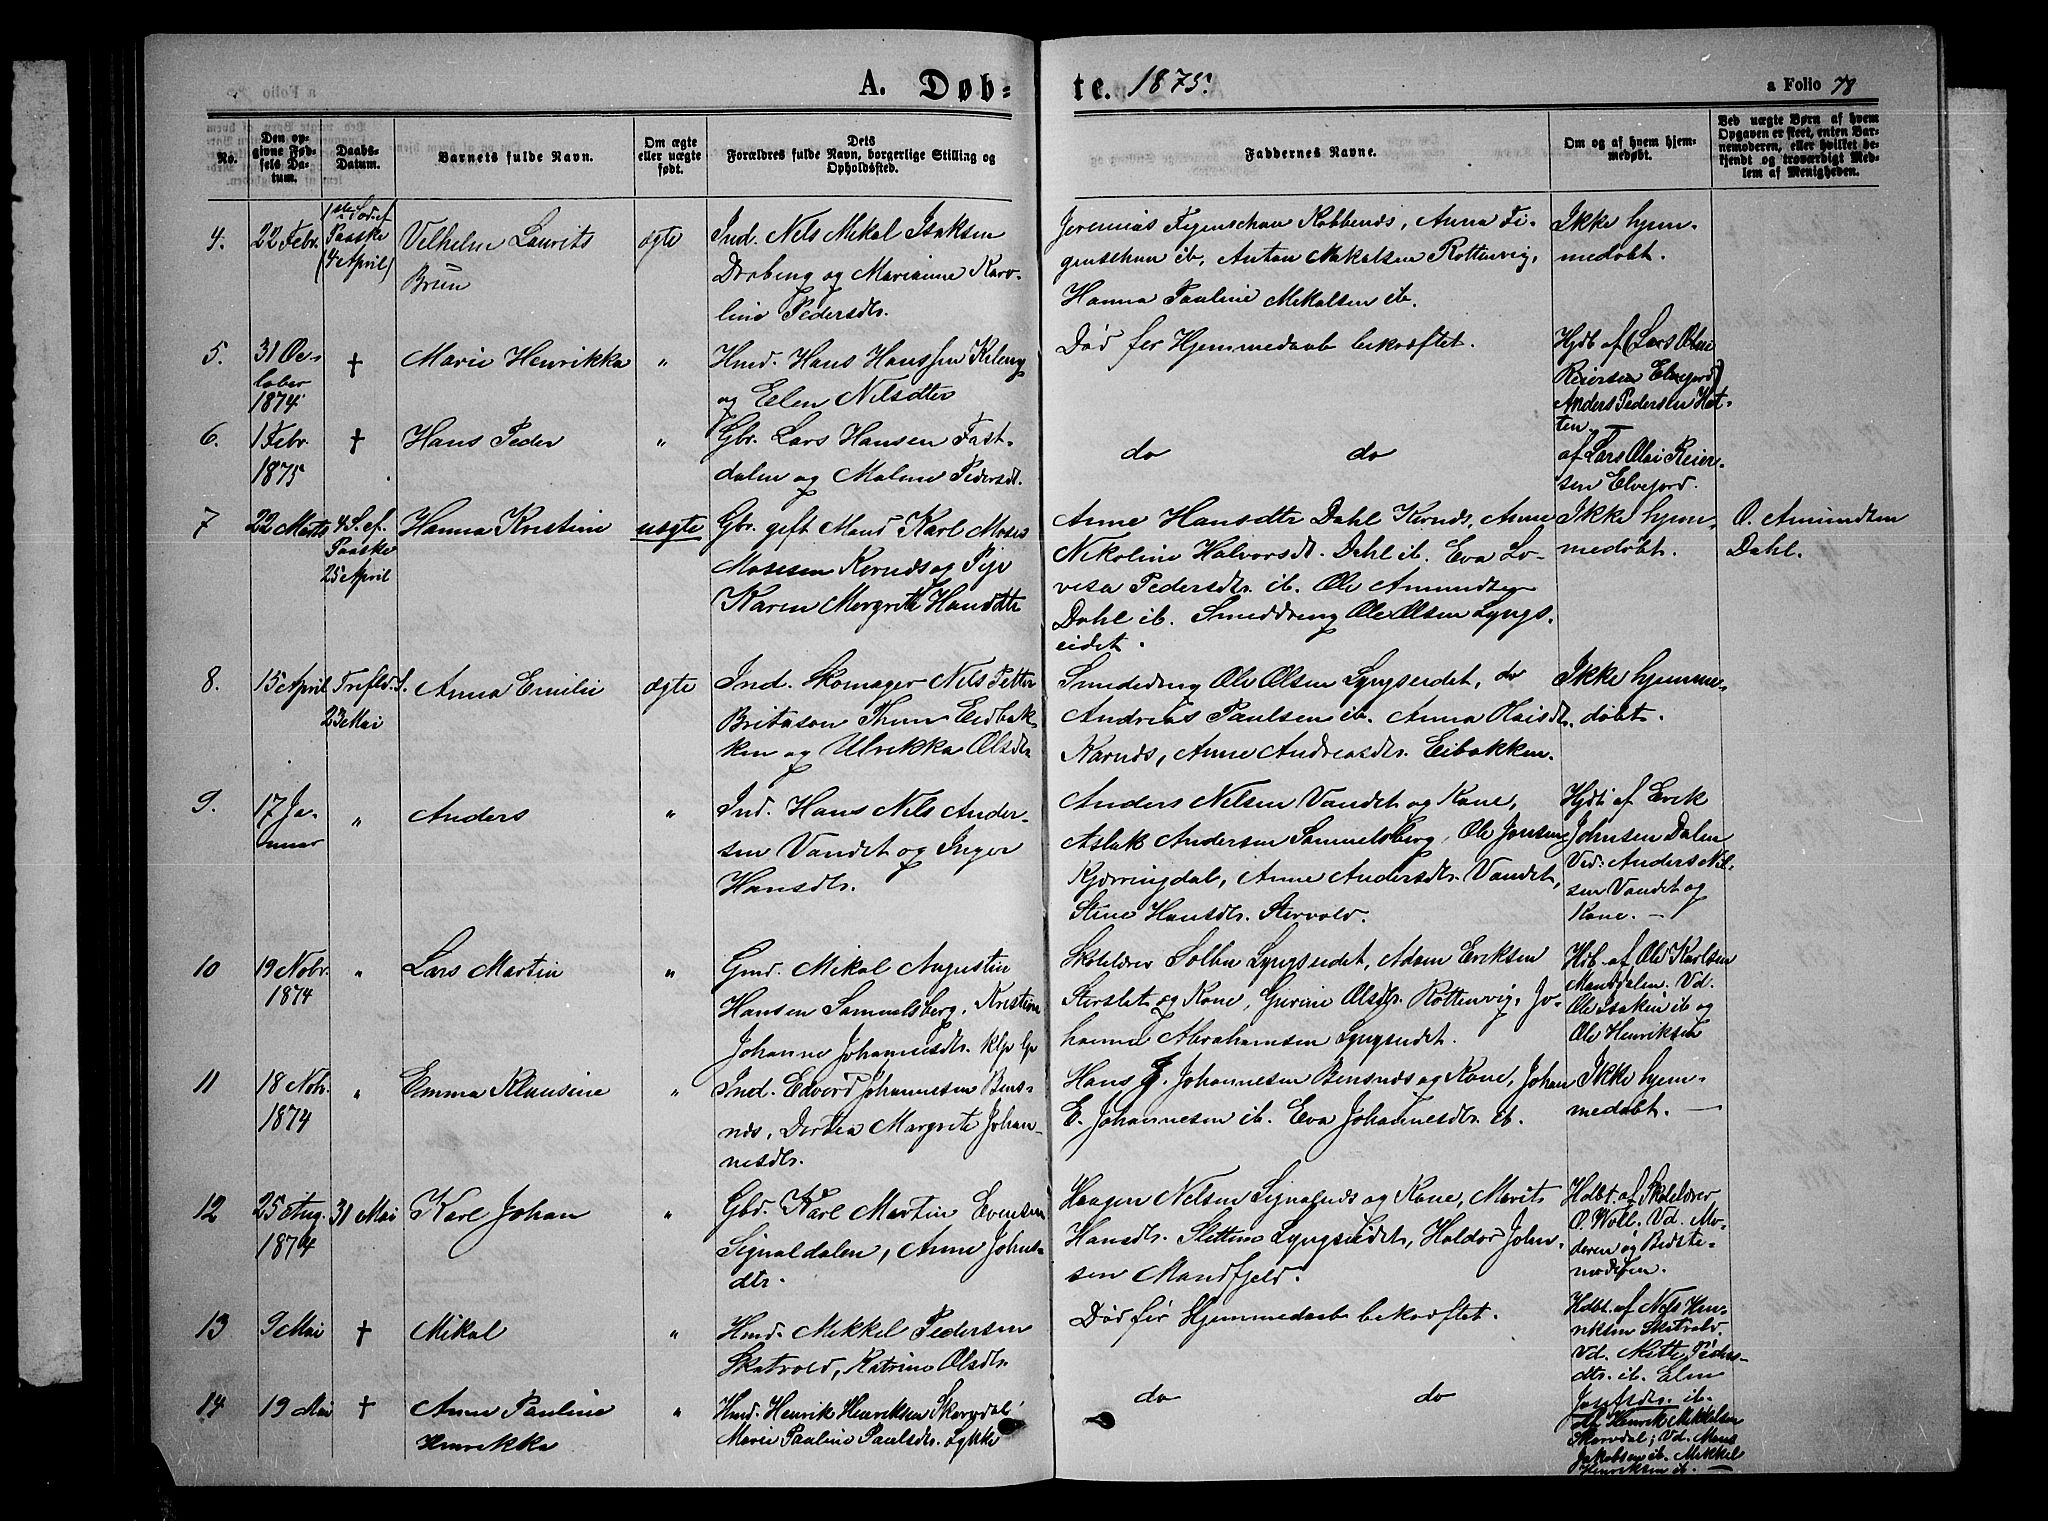 A. Døb=
te. 1875.
a Folio 78
No.
Den op-
givne Fød-
sels Da-
tum.
Daabs-
Datum.
Barnets fulde Navn.
Om ægte
eller uægte
født.
Dets
Forældres fulde Navn, borgerlige Stilling og
Opholdssted.
Faddernes Navne.
Om og af hvem hjem-
medøbt.
Ved uægte Børn af hvem
Opgaven er skeet, enten Bar-
nemoderen, eller hvilket be-
kjendt og troværdigt Med-
lem af Menigheden.
4.
22 Febr.
Paaske
4 April
Vilhelm Laurits
Brun
ægte
Ind. Nils Mikal Isaksen
og Marianne Karo-
line Pedersdtr.
Jeremias Figenschau Kobbenæs, Anna Fi-
genschau ib, Anton Mikalsen Rottenvig,
Hanna Pauline Mikalsen ib.
Ikke hjem-
medøbt.
5.
31 Oc-
tober
1874
†
Marie Henrikka
"
Hmd. Hans Hanssen Kileng
og Ellen Nilsdtr
Død før Hjemmedaab bekræftet.
Hjdb af (Lars Olai
Reiersen Elvejord)
Anders Pedersen Hat-
ten.
6.
1 Febr.
1875
†
Hans Peder
"
Gbr. Lars Hansen Fast-
dalen og Malene Pedersdt.
do do
af Lars Olai Reier-
sen Elvejord.
7
22 Marts
4 S. ef.
Paaske
25 April
Hanna Kristine
uægte
Gbr. gift Mand Karl Moses
Mosesen Kornæs og Pige
Karen Margrete Hansdtr
Anne Hansdtr Dahl Kornæs, Anne
Nikoline Halvorsdt. Dahl ib. Eva Lo-
visa Pedersdtr. ib. Ole Amundsen
Dahl ib. Smeddreng Ole Olsen Lyngs-
eidet.
Ikke hjem-
medøbt.
O. Amundsen
Dahl.
8.
15 April
Trefld. S.
23 Mai
Anna Emilie
ægte
Ind. Skomager Nils Petter
Britason Thun Eidbak-
ken og Ulrikka Olsdtr
Smededreng Ole Olsen Lyngseidet, do
Andreas Paulsen ib. Anna Olaisdt.
Karnæs, Anne Andreasdtr. Eibakken.
Ikke hjemme-
døbt.
9.
17 Ja-
nuar
"
Anders
"
Ind. Hans Nils Ander-
sen Vandet og Inger
Hansdtr.
Anders Nilsen Vandet og Kone,
Aslak Andersen Sammelsberg, Ole Jonsen
Kjerringdal, Anne Andersdtr. Vandet,
Stine Hansdtr. Storvold.
Hjdb. af Erik
Johnsen Dalen
Ved: Anders Nil-
sen Vandet og
Kone. —
10
19 Nobr.
1874
"
Lars Martin
"
Gmd. Mikal Augustin
Hansen Samuelsberg, Kristine
Johanne Johannesdtr.
Skolelærer Solbu Lyngseidet, Adam Eriksen
Storslet og Kone, Gurine Olsdtr. Rottenvig, Jo-
hanna Abrahamsen Lyngseidet.
Hdb. af Ole Karlsen
Manddalen. Vd.
Ole Isaksen ib og
Ole Henriksen
11
18 Nobr.
1874
"
Emma Klausine
"
Ind. Edvard Johannesen Bens-
næs, Dorthea Margrete Johan-
nesdtr.
Hans J. Johannesen Bensnæs og Kone, Johan
E. Johannesen ib. Eva Johannesdtr. ib.
Ikke hjem-
medøbt. —
12
25 Aug.
1874
31 Mai
Karl Johan
"
Gbr. Karl Martin Evensen
Signaldalen, Anne Johns-
dtr.
Haagen Nilsen Signalnæs og Kone, Marit
Hansdtr. Sletten Lyngseidet, Haldor John-
sen Mandfjeld.
Hdbt. af Skolelærer
O. Woll. Vd. Mo-
deren og Bedste-
moderen.
13
9 Mai
†
Mikal
"
Hmd. Mikkel Pedersen
Skatvold, Katrine Olsdtr.
Død før Hjemmedaab bekræftet.
Hdbt. af Nils Hen-
riksen Skatvold.
Vd. Mette Peders-
dtr. ib. Elen
Josefsdtr. ib.
14
19 Mai
†
Anne Pauline
Henrikka
"
Hmd. Henrik Henriksen Skarvdal,
Marie Pauline Paulsdtr. Lykke
do do
af Henrik Mikkelsen
Skarvdal; Vd. Mons
Jakobsen ib. Mikkel
Henriksen ib. —